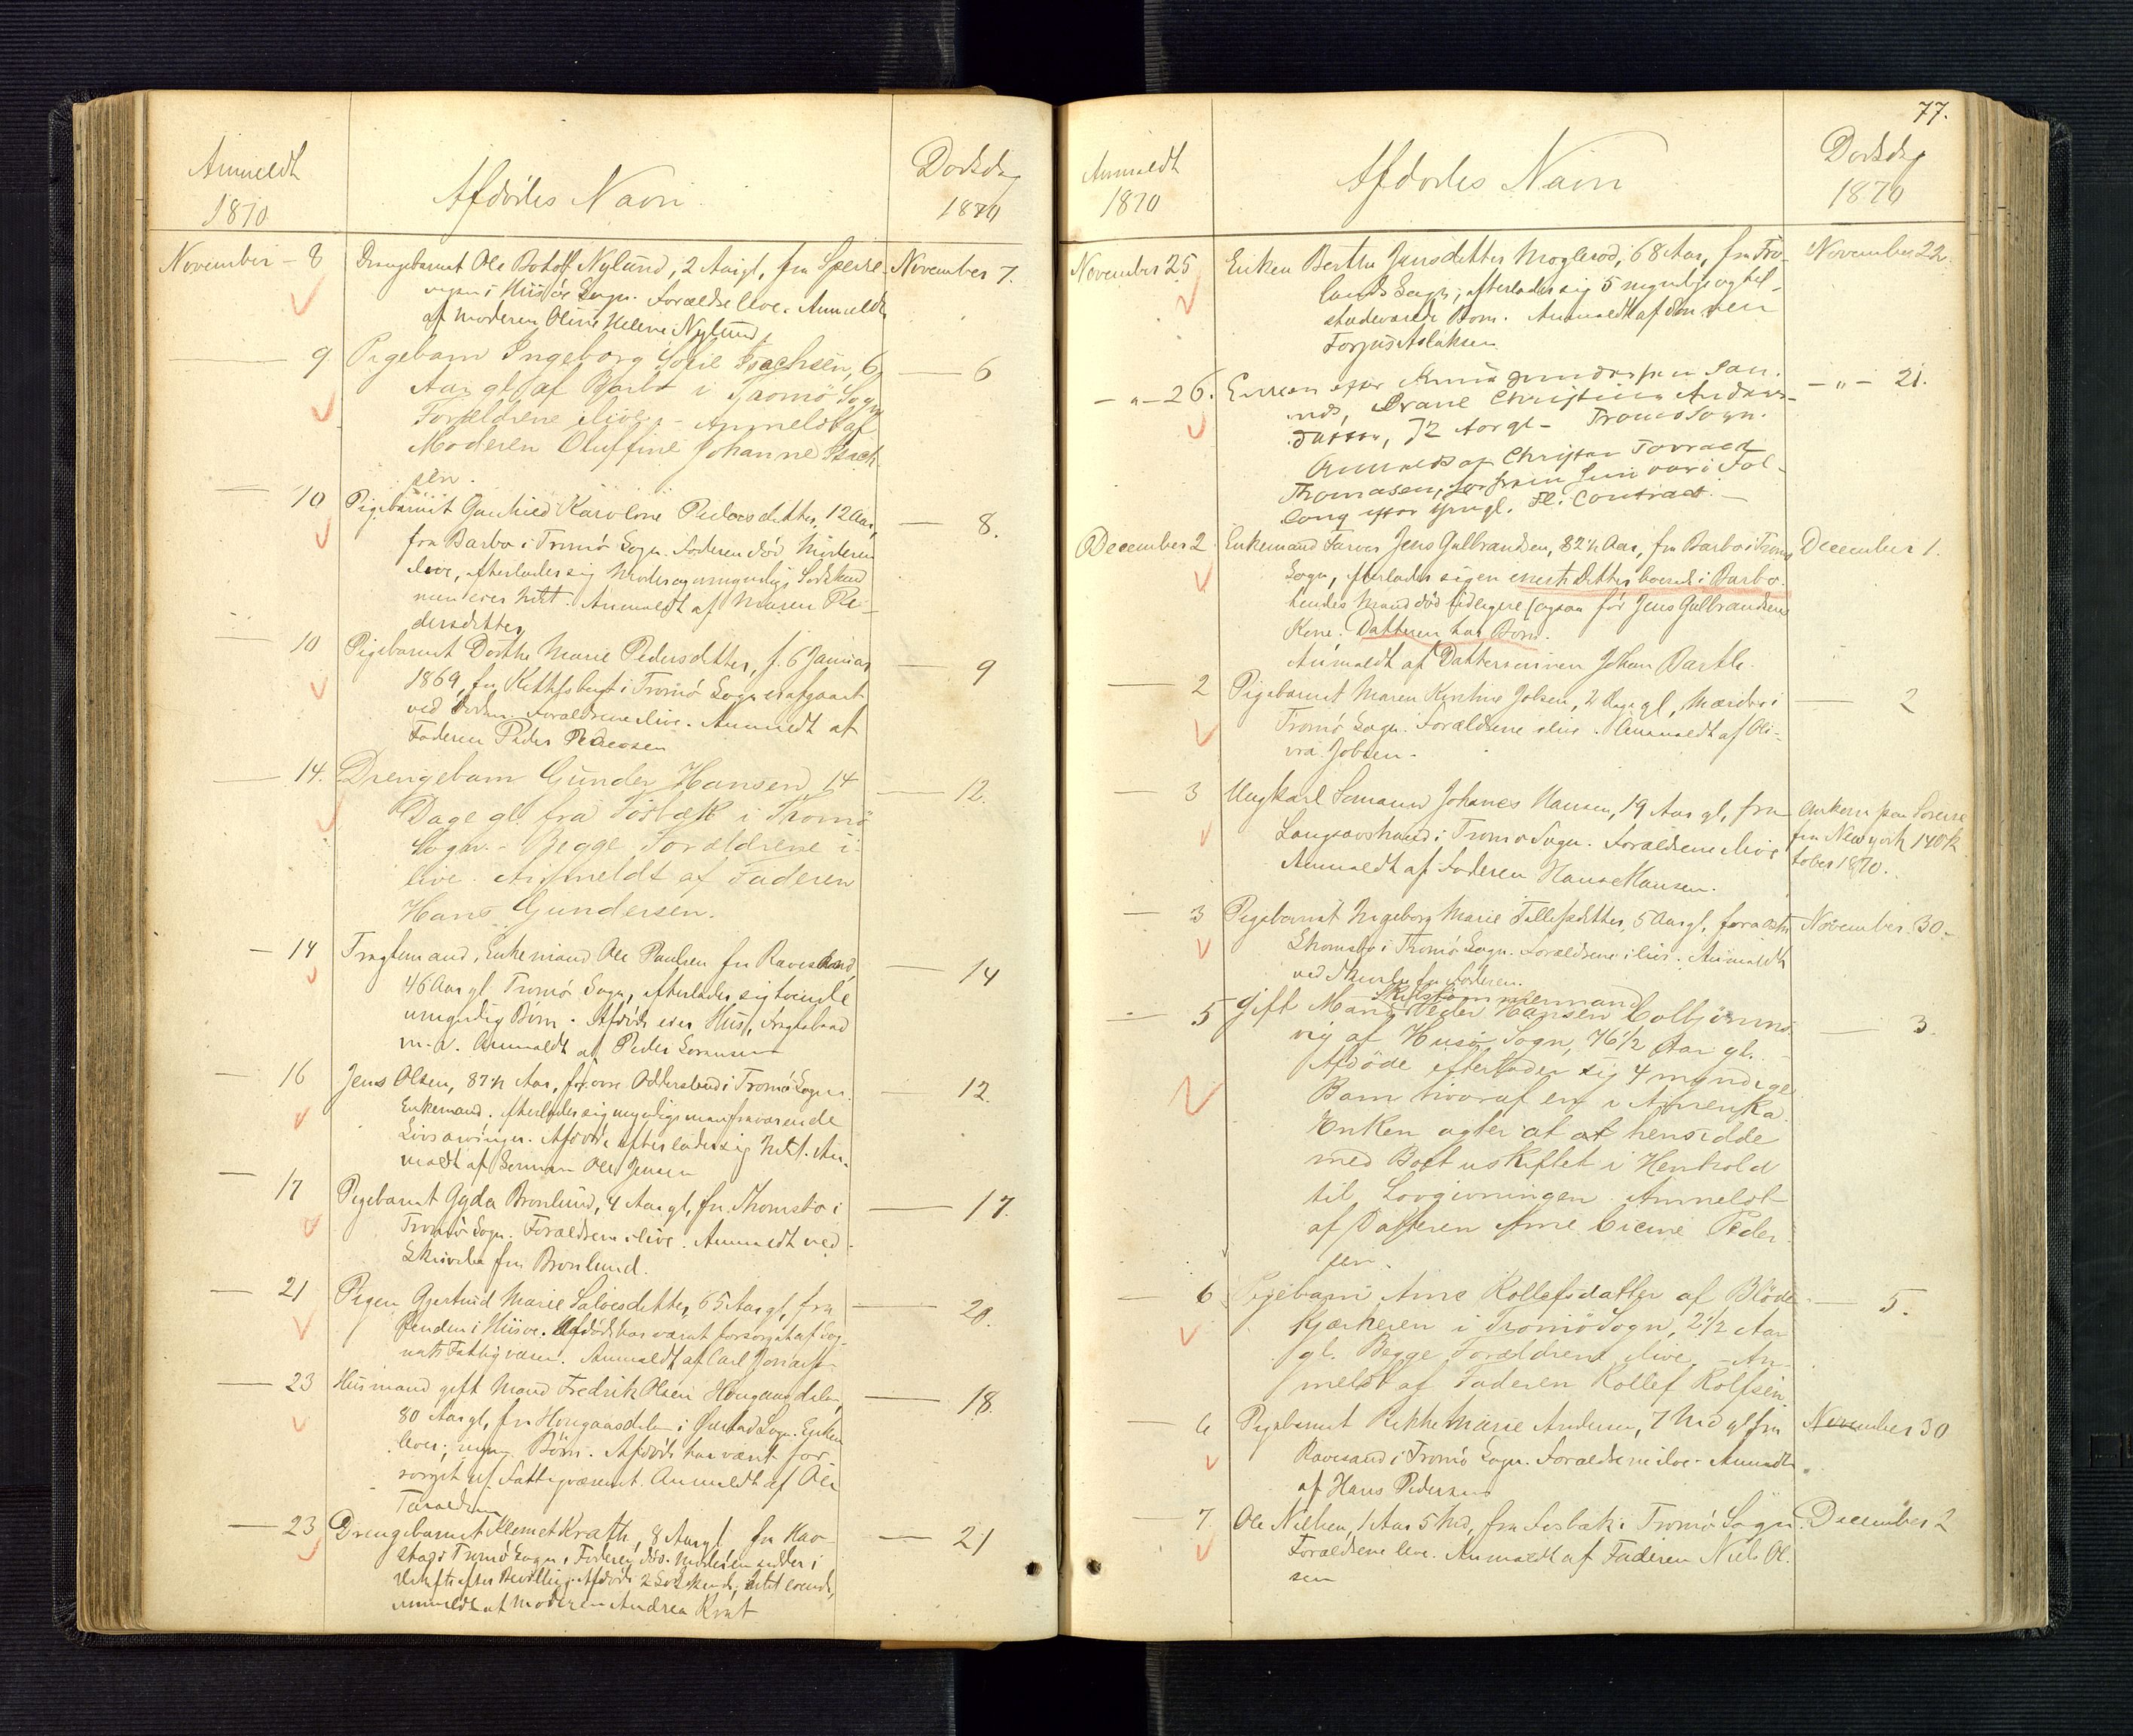 Anmeldt
1870
Afdødes Navn
Dødsdag
1870
November - 8
Drengebarnet Ole Botolf Nylund, 2 Aar gl, fra
November 7.
i Hisøe Sogn. Forældre leve. Anmeldt
af Moderen Oline Helene Nylund
9
Pigebarn Ingeborg Sofie Isachsen, 6
6
Aar gl. af Barbo i Tromø Sogn
Forældrene ilive - Anmeldt af
Moderen Oluffine Johanne Isach-
sen.
10
Pigebarnet Gunhild Karoline Pedersdatter, 12 Aar,
8.
fra Barbo i Tromø Sogn. Faderen død Moderen
ilive, efterlader sig Moder og umyndige Sødskend
men eier Intet. Anmeldt af Maren Pe-
dersdatter
10
Pigebarnet Dorthe Marie Pedersdatter, f. 6 Januar
9
1869, fra i Tromø Sogn er afgaaet
ved Døden. Forældrene ilive. Anmeldt af
Faderen Peder Pedersen
14.
Drengebarn Gunder Hansen 14
12.
Dage gl. fra Fosbæk i Tromø
Sogn. - Begge Forældrene i
live. Anmeldt af Faderen
Hans Gundersen.
14
Enkemand Ole Paulsen fra Ravesand,
14
46 Aar gl. Tromø Sogn, efterlader sig tvende
umyndig Børn. Afdøde eier Hus,
m. v. Anmeldt af Peder Sørensen
16
Jens Olsen, 87½ Aar, fra øvre i Tromø Sogn.
12.
Enkemand. Efterlader sig myndige men fraværende
Livsarvinger. Afdøde efterlader sig Intet. An-
meldt af Sønnen Ole Jensen
17
Pigebarnet Gyda Bronlund, 4 Aar gl, fra Thomsbo i
17.
Tromø Sogn. Forældrene ilive. Anmeldt ved
Skrivelse fra Bronlund.
21
Pigen Gjertrud Marie Salvesdatter, 65 Aar gl, fra
20.
i Hisøe. Afdøde har været forsørget af Sog-
nets Fattigvæsen. Anmeldt af Carl
23
Husmand gift Mand Fredrik Olsen Hougaasdalen,
18.
80 Aar gl, fra Hougaasdalen i Øiestad Sogn. Enken
lever; Børn. Afdøde har været for-
sørget af Fattigvæsenet. Anmeldt af Ole
Taraldsen
23
Drengebarnet Klemet Krath, 8 Aar gl. fra
21
Tromø Sogn. Faderen død. Moderen sidder i
Uskiftet efter Bevilling. Afdøde 2 Sødskende, Intet eiende,
anmeldt af Moderen Andrea Krat
77.
Anmeldt
1870
Afdødes Navn
Dødsdag
1870
November 25
Enken Berthe Jensdatter Moglerød, 68 Aar, fra Fro-
November 22.
lands Sogn; efterlader sig 5 myndige og til-
stedeværende Børn. Anmeldt af Sønnen
Torjus Aslaksen
- " - 26.
Enken efter
- " - 21.
Christine Anders-
datter, 72 Aar gl - Tromø Sogn.
Anmeldt af Christen
Thomasen,
Contract. -
December 2
Enkemand Farver Jens Gulbrandsen, 82½ Aar, fra Barbo i Tromø
December 1.
Sogn, efterlader sig en eneste Datter boende i Barbo.
hendes Mand død tidligere (ogsaa før Jens Gulbrandsens
Kone. Datteren har Børn.
Anmeldt af Dattersønnen Johan Barth.
2
Pigebarnet Maren Kirstine Jobsen, 2 Dage gl, Mærdø i
2
Tromø Sogn. Forældrene ilive. Anmeldt af Oli-
via Jobsen.
3
Ungkarl Sømand Johanes Hansen, 19 Aar gl, fra
Langsævstrand i Tromø Sogn. Forældrene ilive
fra New York 14 Ok
tober 1870.
Anmeldt af Faderen Hans Hansen.
3
Pigebarnet Ingeborg Marie Tellefsdatter, 5 Aar gl,
November 30.
Thomsbo i Tromø Sogn. Forældrene ilive. Anmeldt
ved Skrivelse fra Faderen.
Skibstømmermand
5
gift Mand Peder Hansen Colbjørns-
3.
vig af Hisø Sogn, 76½ Aar gl.
Afdøde efterlader sig 4 myndige
Børn hvoraf en i Amerika
Enken agter at at hensidde
med Boet uskiftet i Henhold
til Lovgivningen. Anmeldt
af Datteren Ane Peder-
sen.
6
Pigebarn Ane Kollefsdatter af Bløde-
5.
kjærkeren i Tromø Sogn, 2½ Aar
gl. Begge Forældrene ilive. - An-
meldt af Faderen Kollef Rolfsen
6
Pigebarnet Rikke Marie Andersen, 7 Md gl fra
November 30
Ravesand i Tromø Sogn. Forældrene ilive. Anmeldt
af Hans Pedersen
7
Ole Nielsen, 1 Aar 5 Md, fra Fosbæk i Tromø Sogn.
December 2
Forældrene leve. Anmeldt af Faderen Niels Ol-
sen